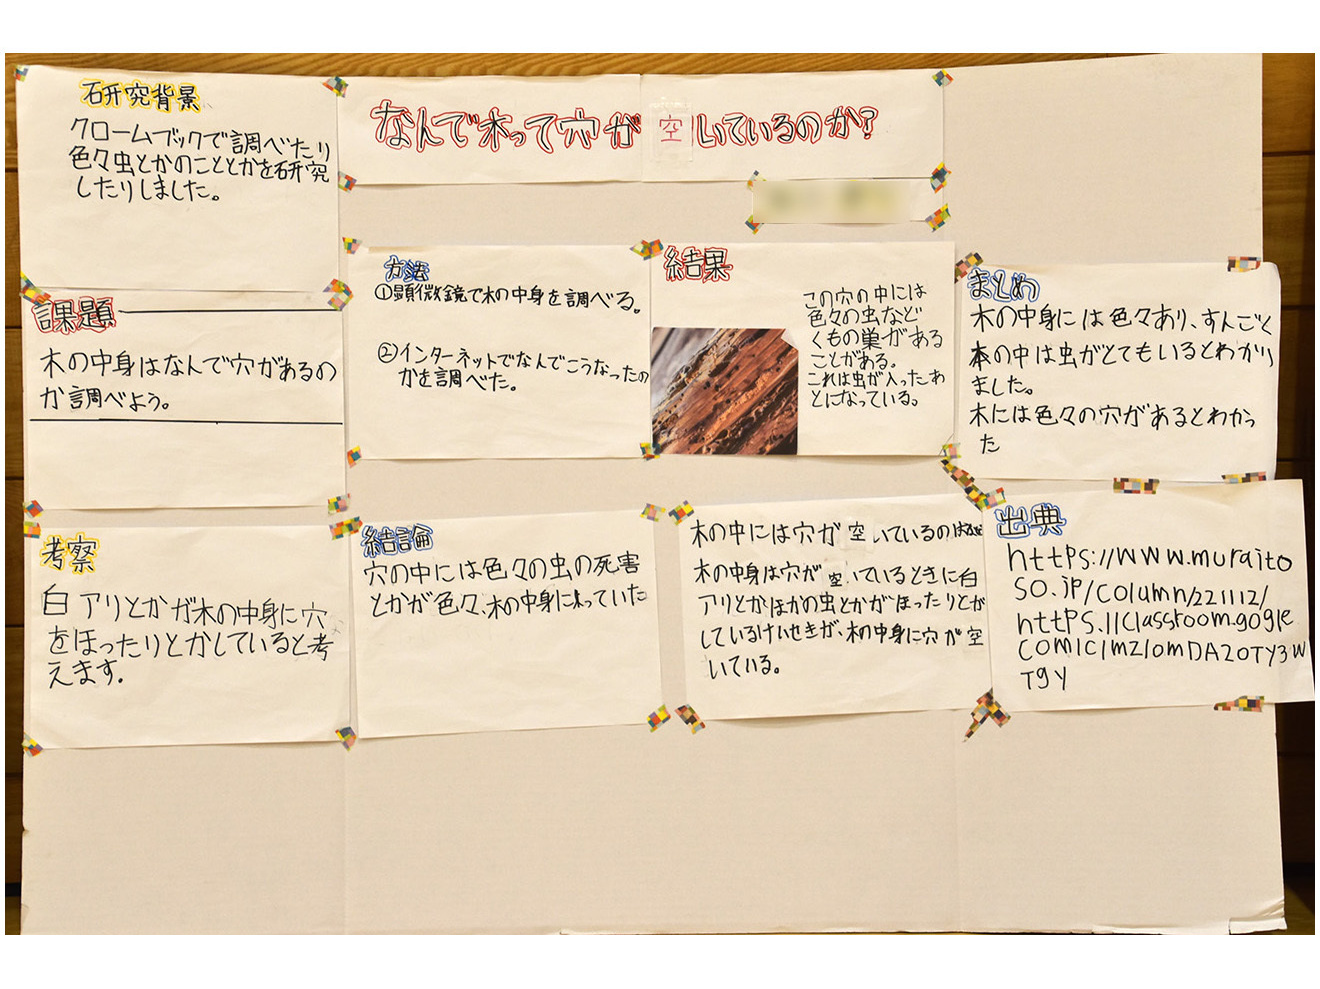 研究背景
クロームブックで調べたり
色々虫とかのこととかを研究
したりしました。
なんで木って穴が空いているのか?
課題
木の中身はなんで穴があるの
か調べよう。
方法
①顕微鏡で木の中身を調べる。
②インターネットでなんでこうなったの
かを調べた。
結果
この穴の中には
色々の虫など
くもの巣がある
ことがある。
これは虫が入ったあ
とになっている。
まとめ
木の中身には色々あり、すんごく
木の中は虫がとてもいるとわかり
ました。
木には色々の穴があるとわかっ
た
考察
白アリとかが木の中身に穴
をほったりとかしていると考
えます。
結論
穴の中には色々の虫の死害
とかが色々、木の中身に入っていた
木の中には穴が空いているのは
木の中身は穴が空いているときに白
アリとかほかの虫とかがほったりとか
しているけいせきが、木の中身に穴が空
いている。
出典
https://www.muraito
so.jp/column/221112/
https.//classroom.gogle
com/c/mz/omDA2OTY3W
T9Y